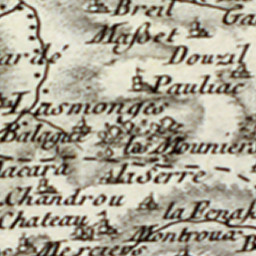 Breil
Ga
Masset
ardé
Douzil
Pauliac
Lasmonges
Balague
las Mouniers
Lacara
la Serre
Chandrou
la Fenas
Chateau
Montroux
B
Merciers